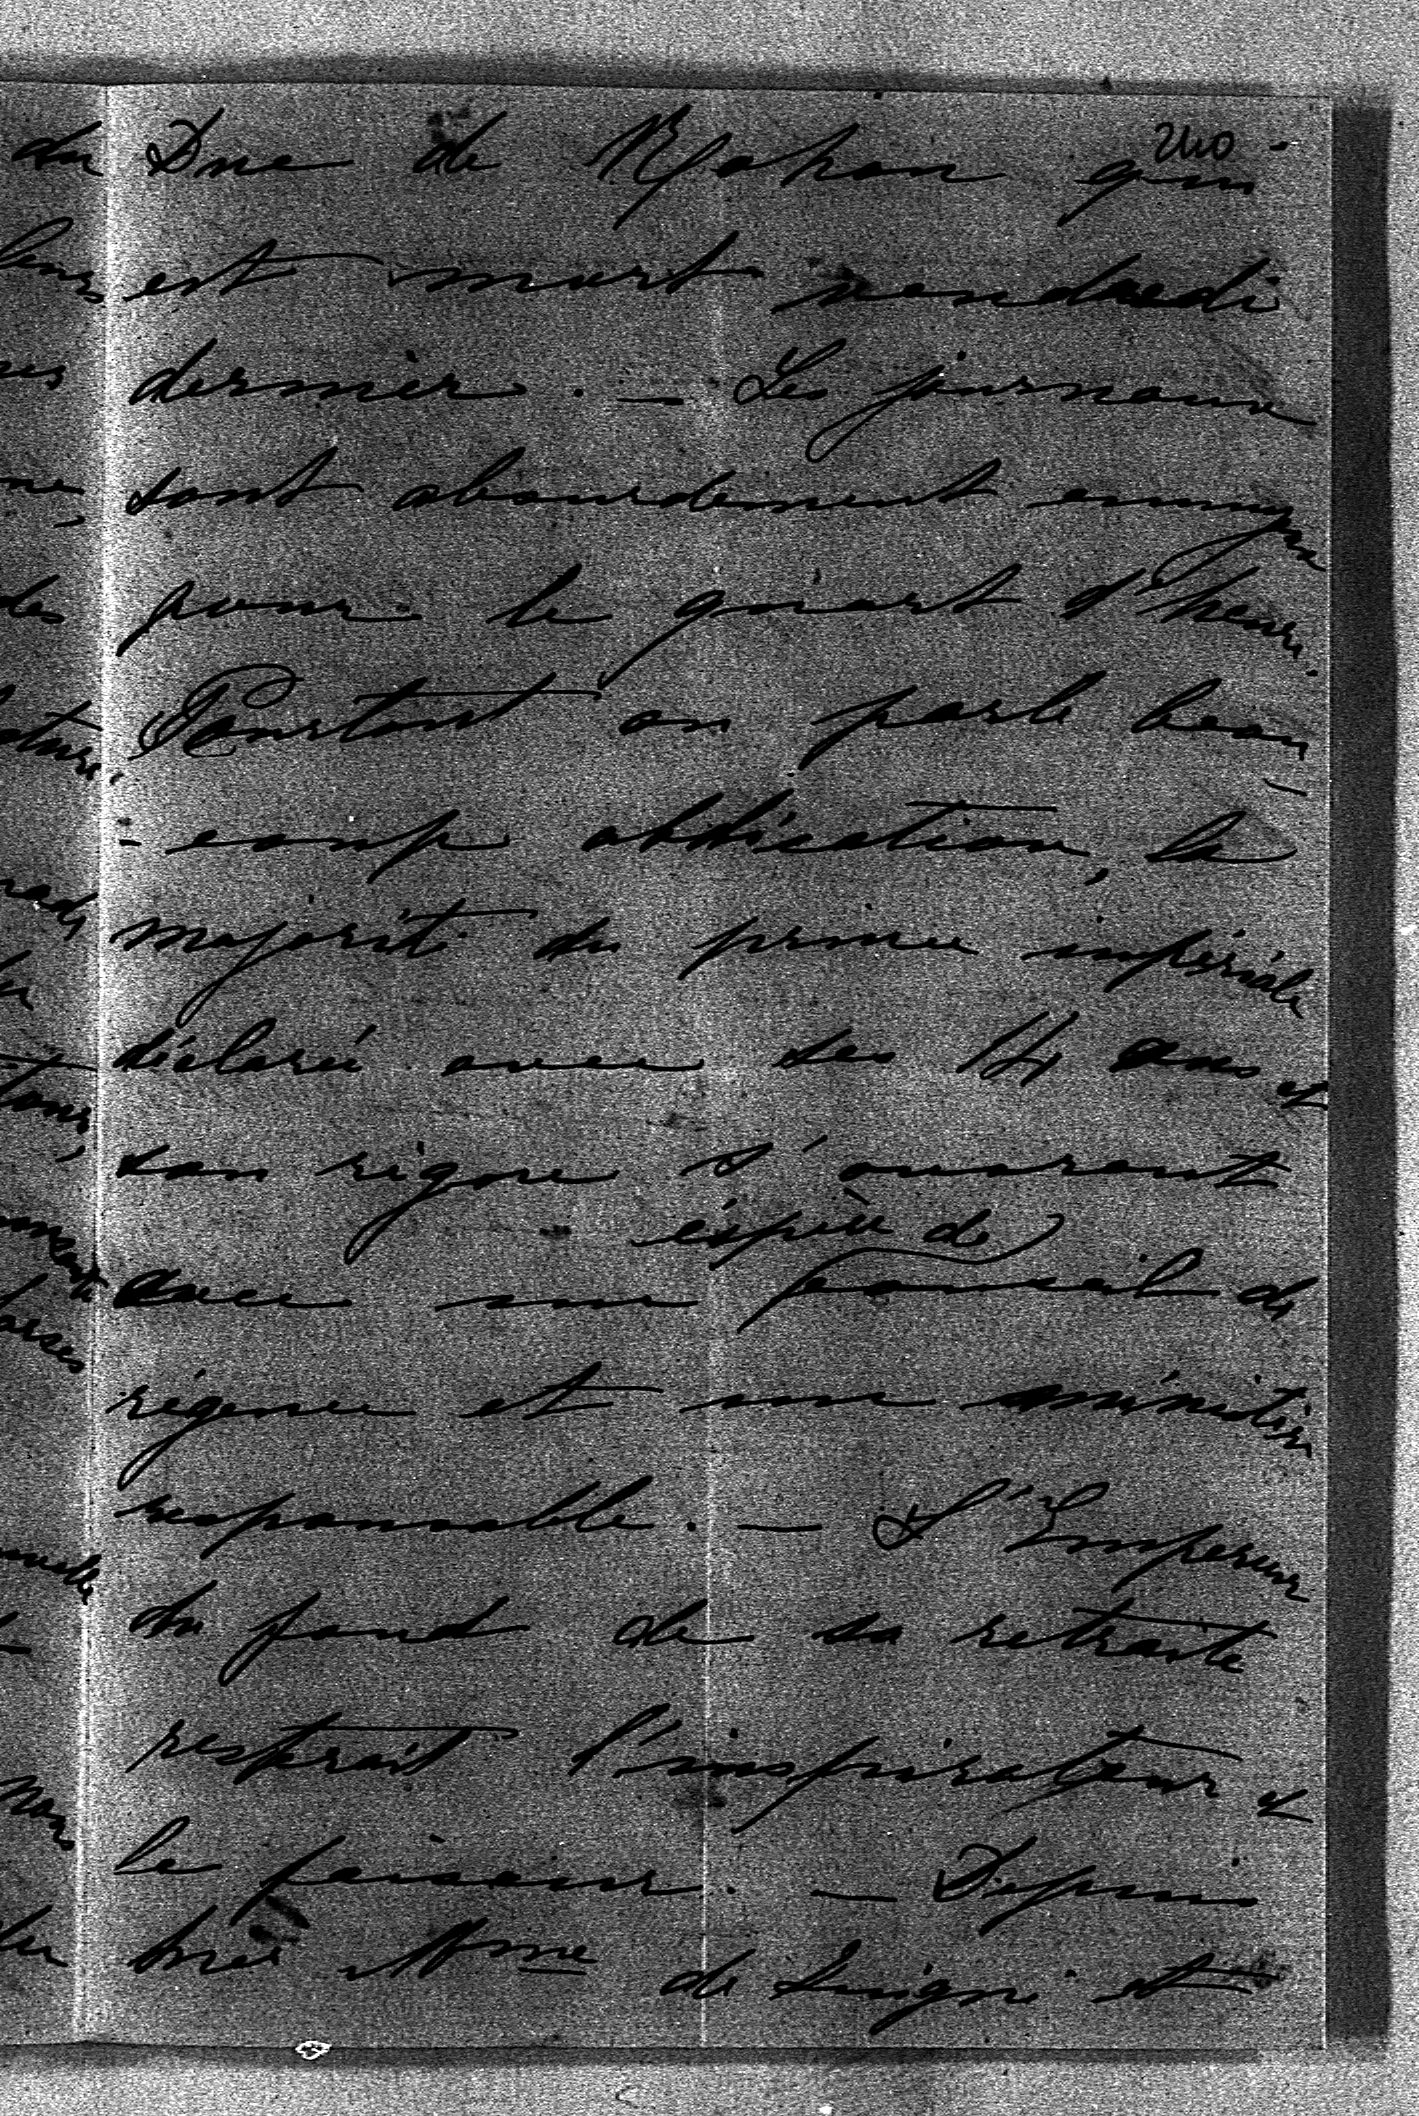 240
Duc de Rohan qui
est mort vendredi
dernier. — Les journaux
sont absurdement ennuyeux
pour le quart d'heure.
Pourtant on parle beau-
-coup abdication, la
majorité du prince impérial
déclarée avec ses 14 ans et
son règne s'ouvrant
espèce de
avec une conseil de
régence et une ministère
responsable. — L'Empereur
du fond de sa retraite
resterait l'inspirateur et
le penseur. — Depuis
hier Mme de Luigné et